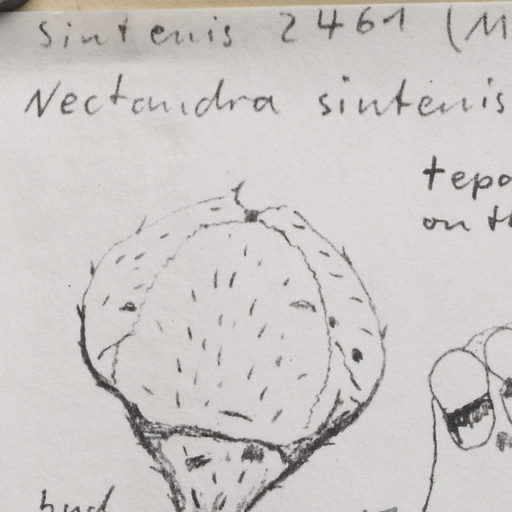 Sintenis 2461 (M
Nectandra sintenis
tepa
on th
bud